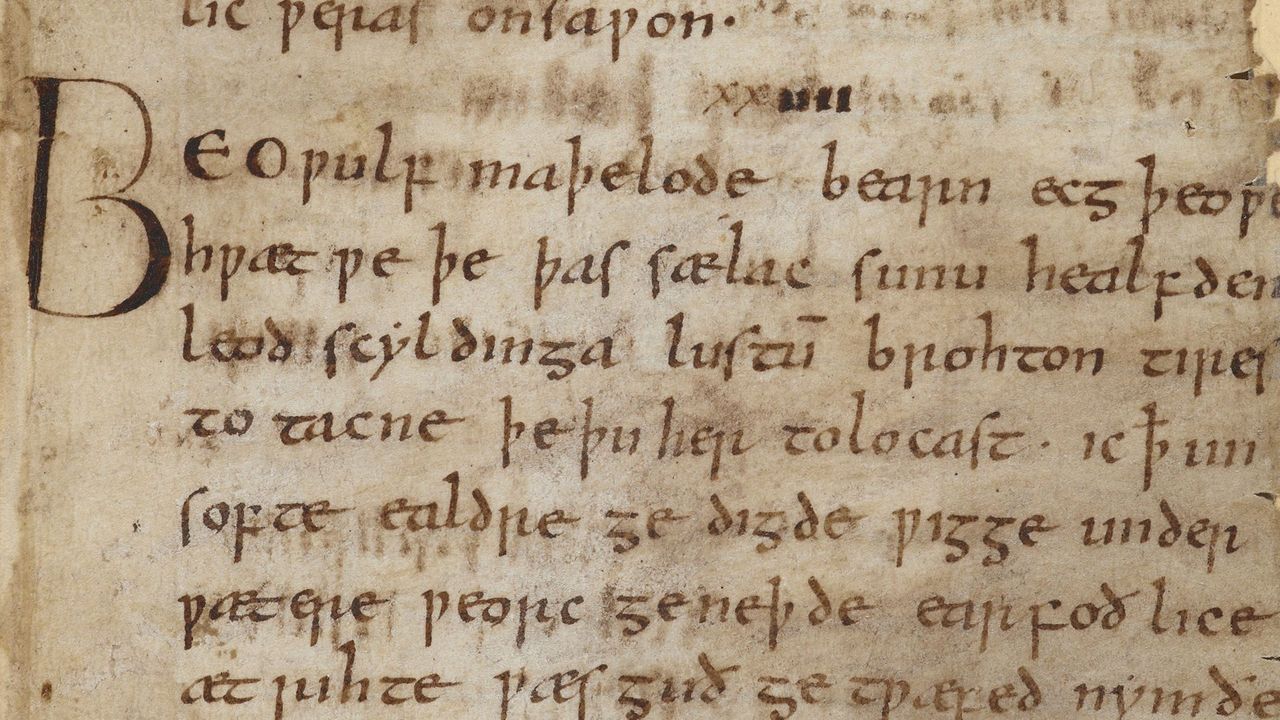 lic ƿeras onsaƿon·
xxiiii
BEOǷulf maþelode bearn ecgþeoƿe
hƿæt ƿe þe þas sælac sunu healfden
leod scyldinga lustū brohton tires
to tacne þeþu her tolocast· ic ꝥ un
softe ealdre ge digde ƿigge under
ƿætere ƿeorc geneþde earfoð lice
æt rihte ƿæs guð ge tƿæfed nymðe